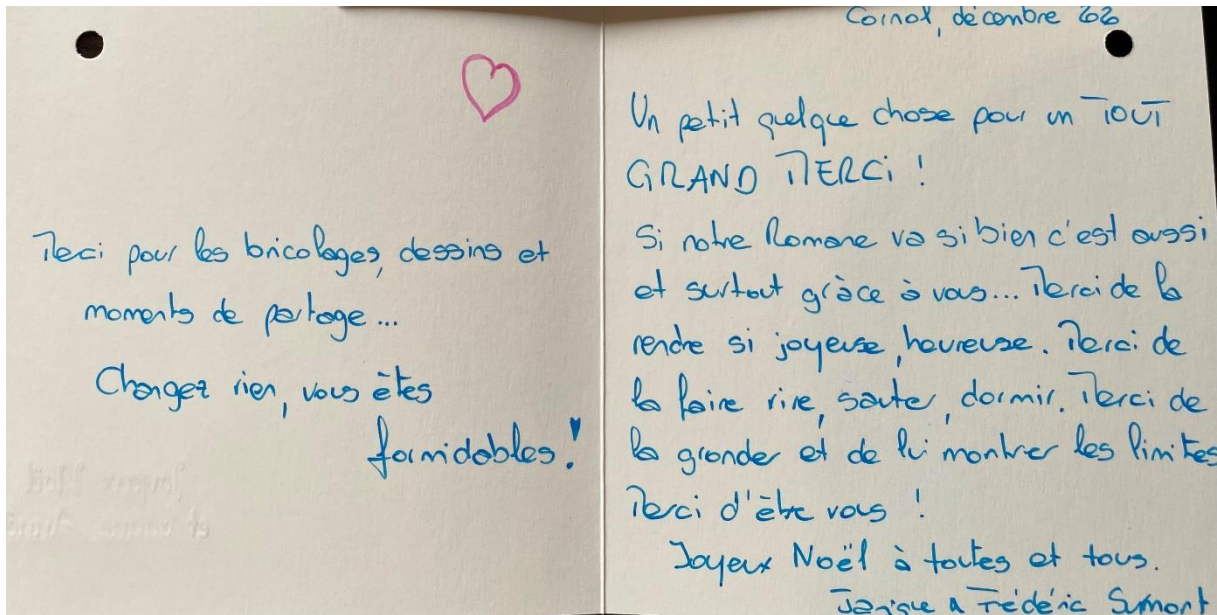 Merci pour les bricolages, dessins et
moments de partage...
Changez rien, vous êtes
formidables!
Cornol, décembre 22
Un petit quelque chose pour un TOUT
GRAND MERCi !
Si notre Romane va si bien c'est aussi
et surtout grâce à vous... Merci de la
rendre si joyeuse, heureuse. Merci de
la faire rire, sauter, dormir. Merci de
la gronder et de lui montrer les limites
Merci d'être vous !
Joyeux Noël à toutes et tous.
Frédéric